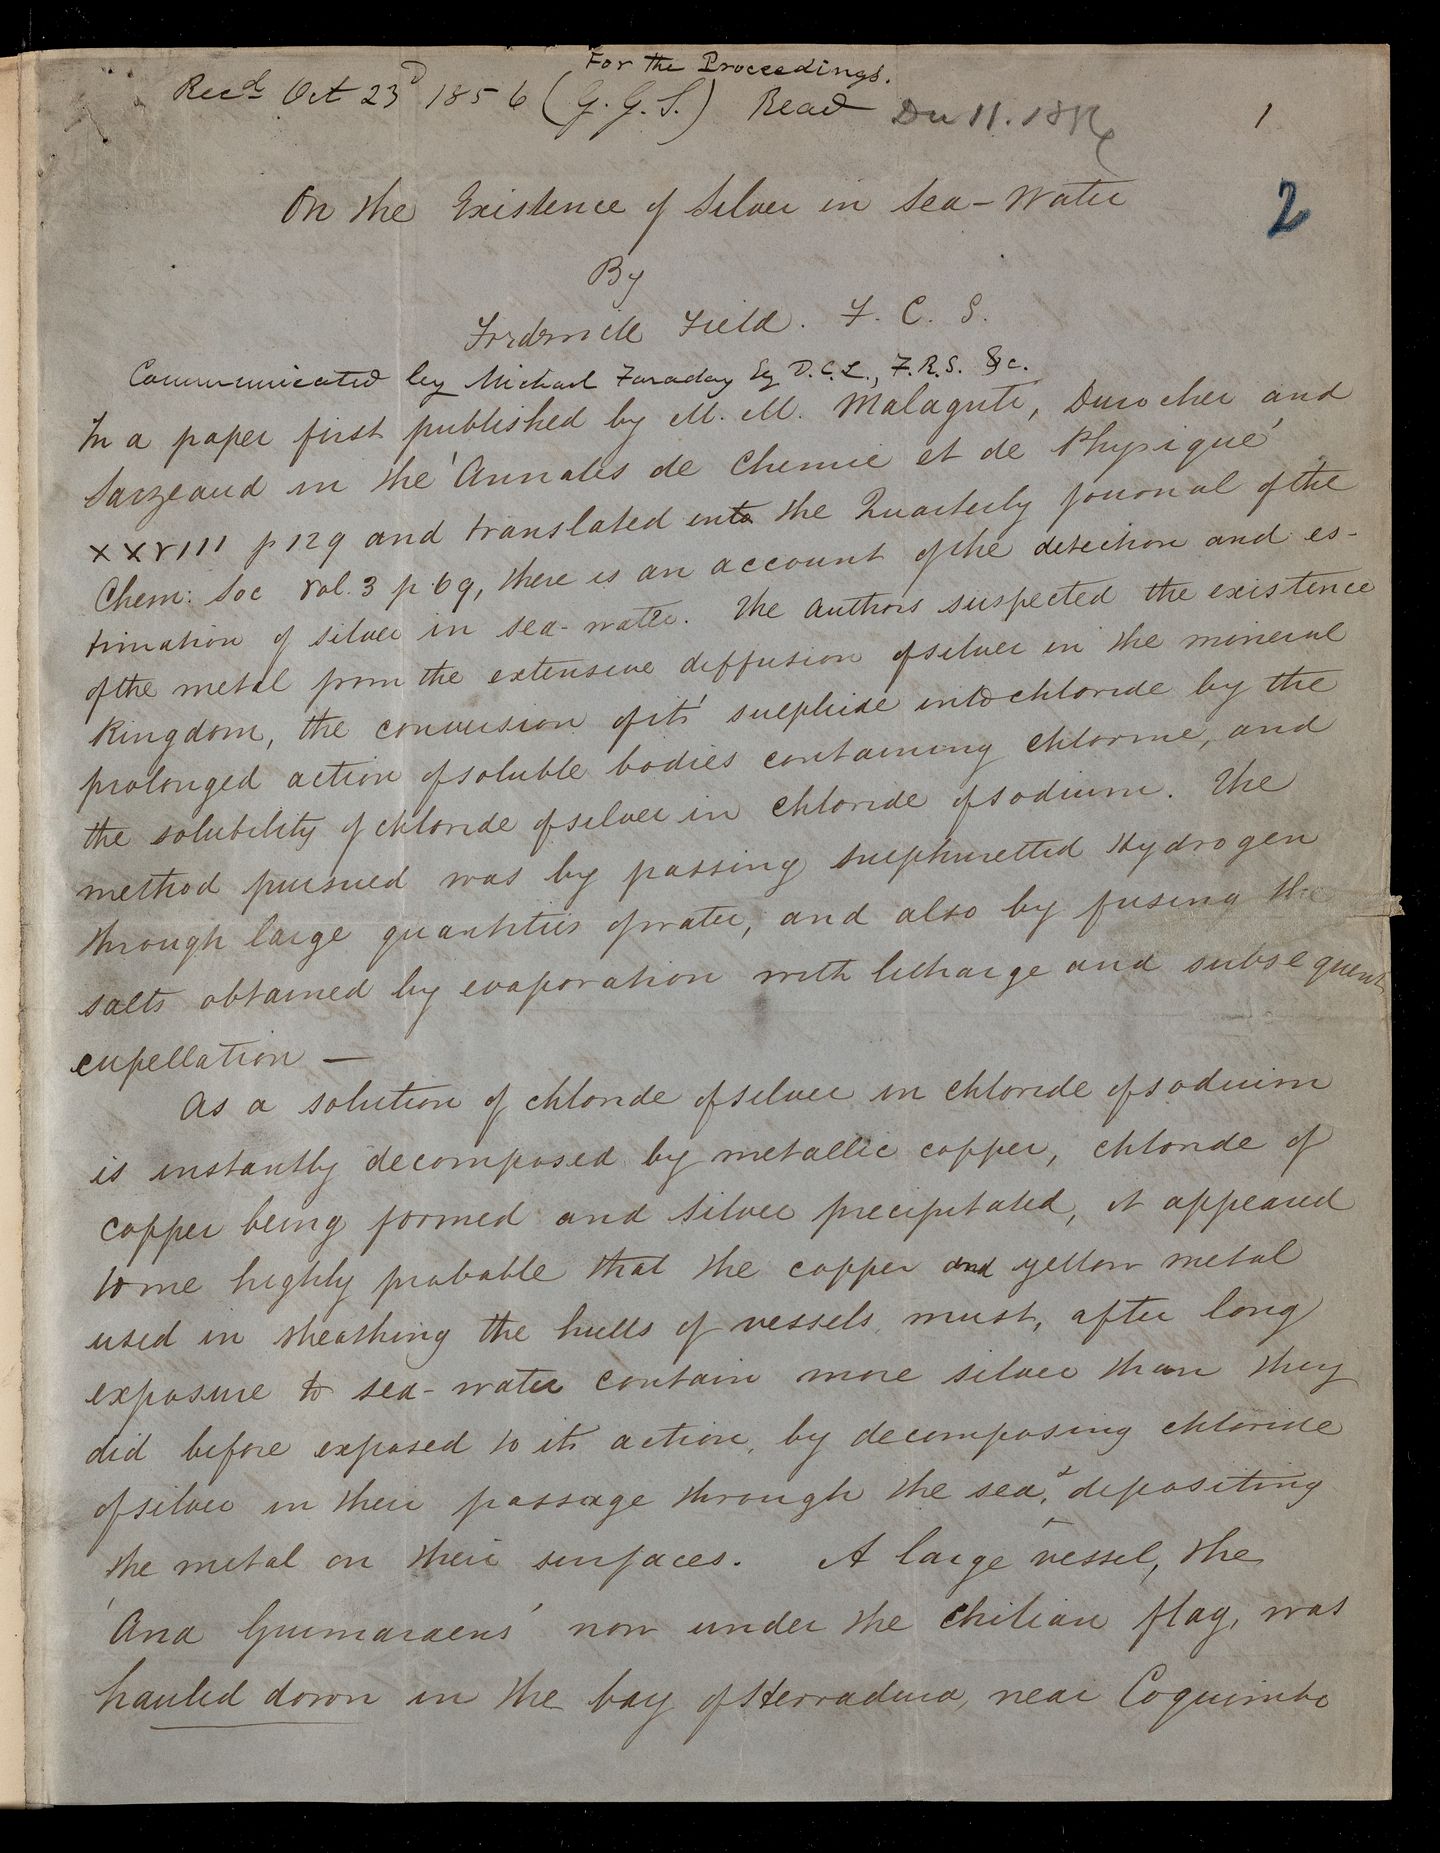 For the Proceedings.
Recd Oct 23d 1856 (G. G. S.) Read Dec 11. 1856
1
2
On the Existence of Silver in Sea-Water
By
Frederick Field. F. C. S.
Communicated by Michael Faraday Esq D.C.L., F.R.S. &c.
In a paper first published by M. M. Malaguti, Durocher and
Sarzeaud in the 'Annales de Chemie et de Physique'
XXVIII p 129 and translated into the Quarterly Journal of the
Chem: Soc Vol. 3 p 69, there is an account of the detection and es-
timation of silver in sea-water. The Authors suspected the existence
of the metal from the extensive diffusion of silver in the mineral
Kingdom, the conversion of it's sulphide into chloride by the
prolonged action of soluble bodies containing chlorine, and
the solubility of chloride of silver in chloride of sodium. The
method pursued was by passing sulphuretted Hydrogen
through large quantities of water, and also by fusing the
salts obtained by evaporation with litharge and subsequent
cupellation —
As a solution of chloride of silver in chloride of sodium
is instantly decomposed by metallic copper, chloride of
copper being formed and silver precipitated, it appeared
to me highly probable that the copper and yellow metal
used in sheathing the hulls of vessels, must, after long
exposure to sea-water contain more silver than they
did before exposed to its action, by decomposing chloride
of silver in their passage through the sea, & depositing
the metal on their surfaces. A large vessel, the
'Ana Guimaraens' now under the Chilian flag, was
hauled down in the bay of Herradura, near Coquimbo